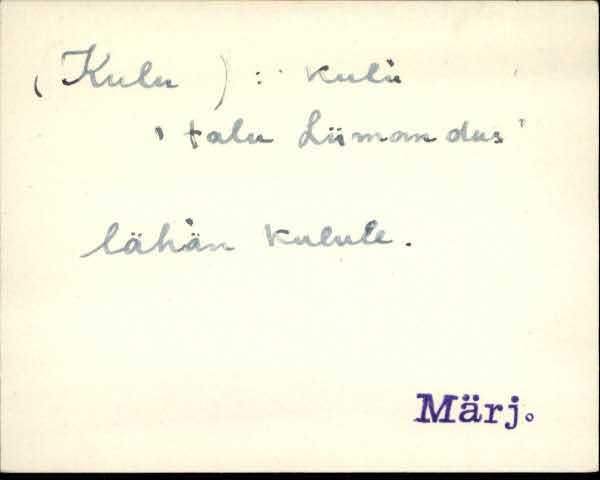 (Kulu) : kulu
'talu Liimandus'
lähän kulule.
Märj.